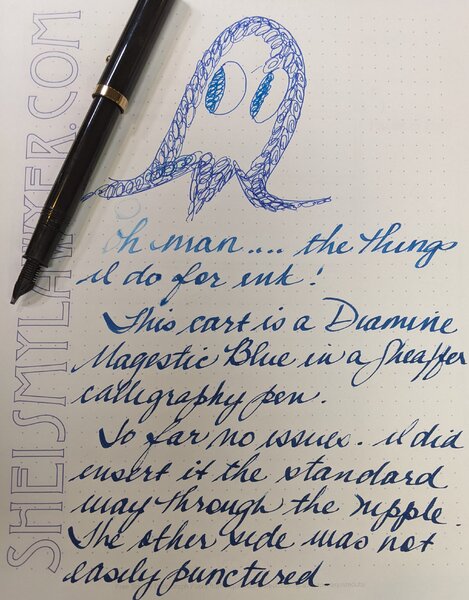 SHEISMYLAWYER.COM
Oh man.... the things
I'll do for ink!
This cart is a Diamine
Magestic Blue in a Sheaffer
calligraphy pen.
So far no issues. I did
insert it the standard
way through the nipple.
The other side was not
easily punctured.